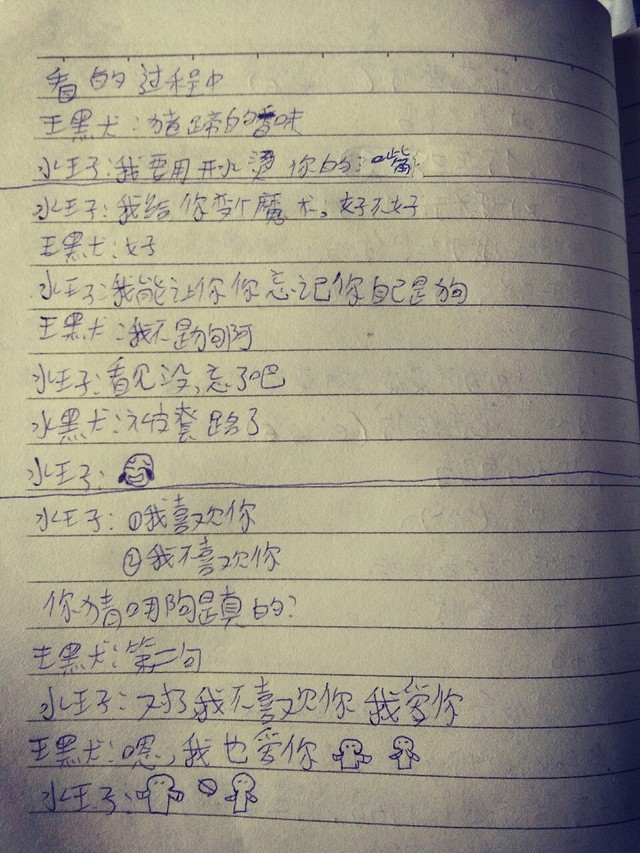 看的过程中
王黑犬:猪蹄的香味
水王子:我要用开水烫你的嘴
水王子:我给你变个魔术,好不好
王黑犬:好
水王子:我能让你你忘记你自己是狗
王黑犬:我不是狗阿
水王子:看见没,忘了吧
水黑犬:被套路了
水王子:
水王子:①我喜欢你
②我不喜欢你
你猜哪句是真的?
王黑犬:第二句
水王子:对了,我不喜欢你 我爱你
王黑犬:嗯,我也爱你
水王子: